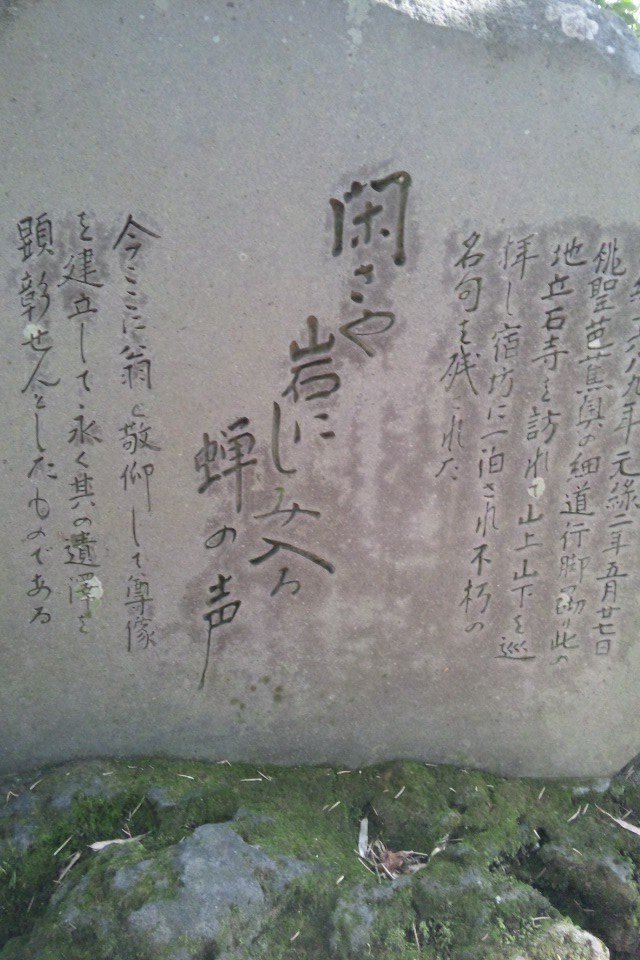 六八九年 元禄二年五月廿七日
俳聖芭蕉奥の細道行脚 此の
地立石寺を訪れ 山上山下を巡
拝し宿坊に一泊され不朽の
名句を残された
閑さや
岩にしみ入る
蝉の声
今ここに翁を敬仰して尊像
を建立して永く其の遺澤を
顕彰せんとしたものである